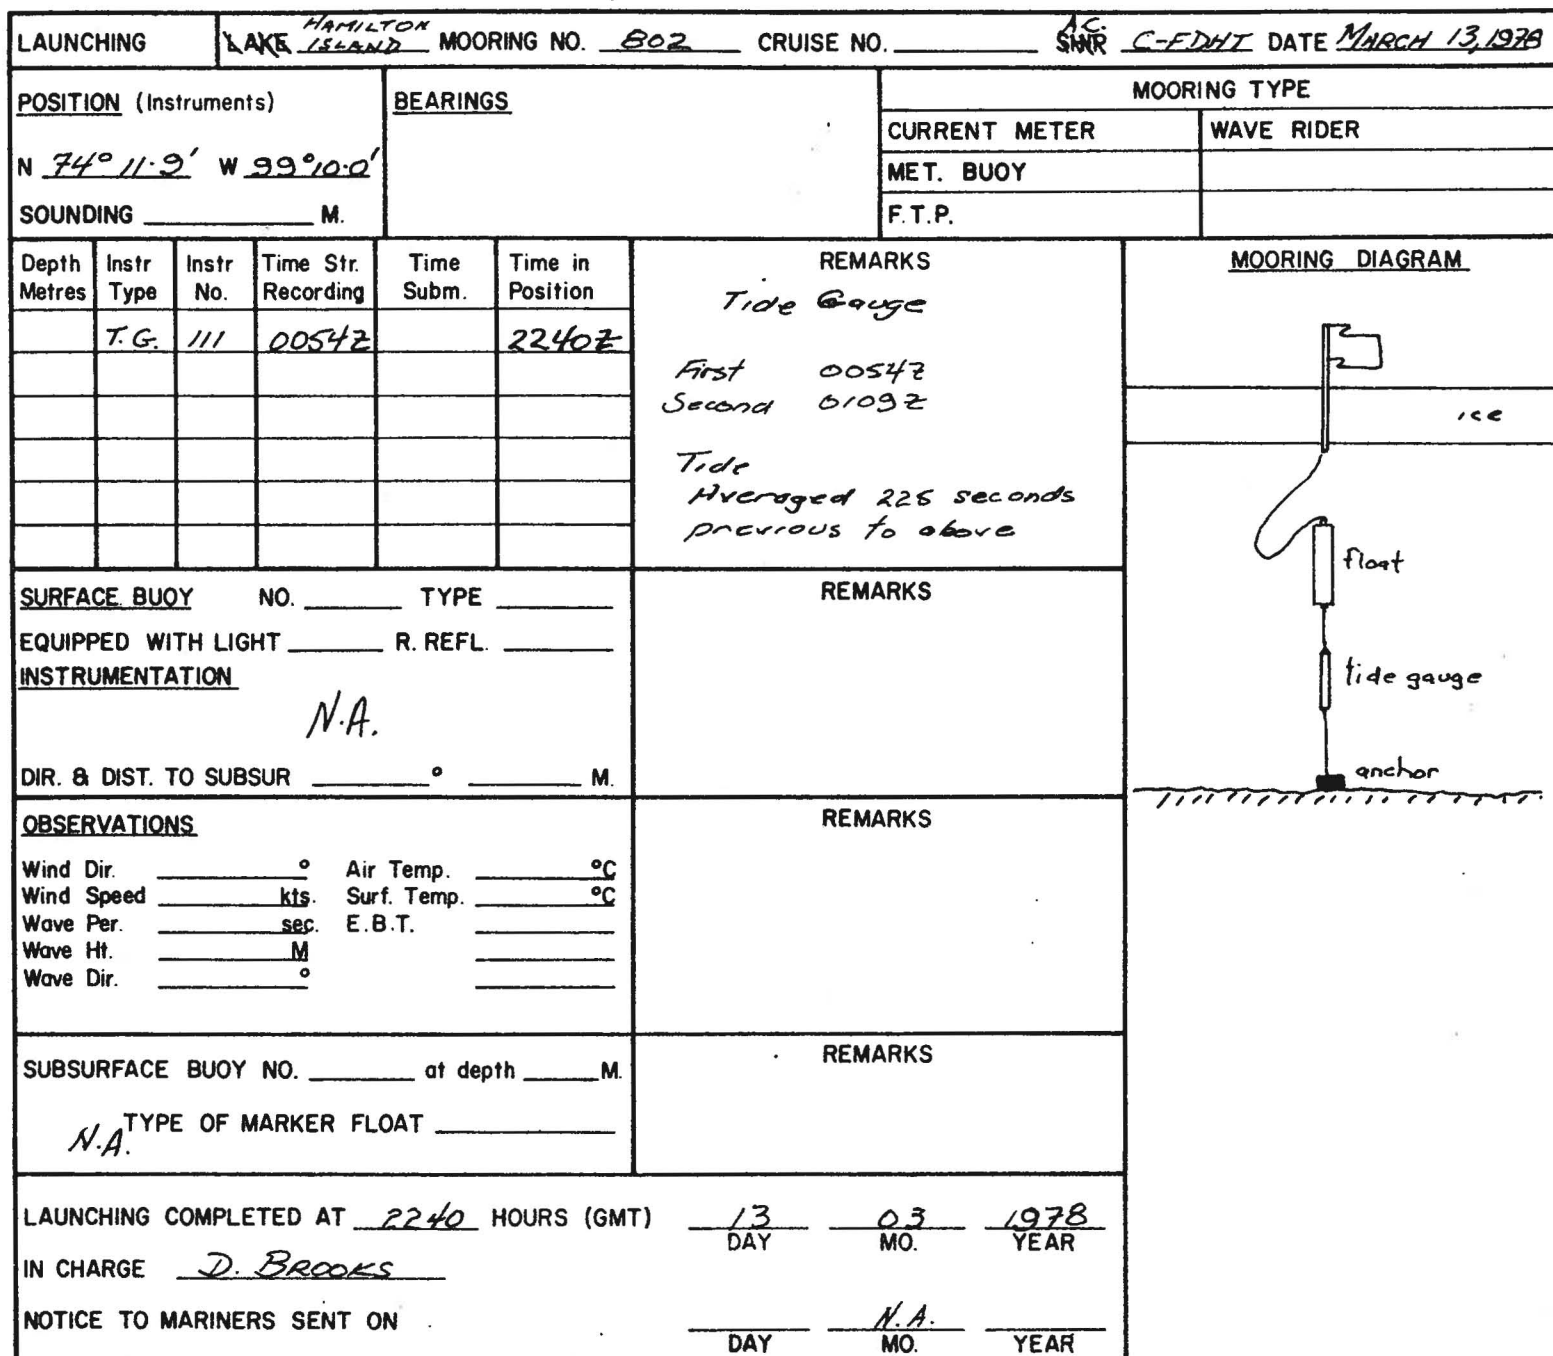 LAUNCHING LAKE HAMILTON ISLAND MOORING NO. 802 CRUISE NO. SHIP A.C. C-FDHT DATE MARCH 13, 1978
POSITION (Instruments)
N 74° 11.9' W 99° 10.0'
SOUNDING M.
BEARINGS
MOORING TYPE
CURRENT METER WAVE RIDER
MET. BUOY
F.T.P.
Depth Metres Instr Type Instr No. Time Str. Recording Time Subm. Time in Position
T.G. 111 0054Z 2240Z
REMARKS
Tide Gauge
First 0054Z
Second 0109Z
Tide
Averaged 225 seconds
previous to above
MOORING DIAGRAM
ice
float
tide gauge
anchor
SURFACE BUOY NO. TYPE
EQUIPPED WITH LIGHT R. REFL.
INSTRUMENTATION
N.A.
DIR. & DIST. TO SUBSUR ° M.
REMARKS
OBSERVATIONS
Wind Dir. ° Air Temp. °C
Wind Speed kts. Surf. Temp. °C
Wave Per. sec. E.B.T.
Wave Ht. M
Wave Dir. °
REMARKS
SUBSURFACE BUOY NO. at depth M.
N.A. TYPE OF MARKER FLOAT
REMARKS
LAUNCHING COMPLETED AT 2240 HOURS (GMT) 13 03 1978
DAY MO. YEAR
IN CHARGE D. BROOKS
NOTICE TO MARINERS SENT ON N.A.
DAY MO. YEAR